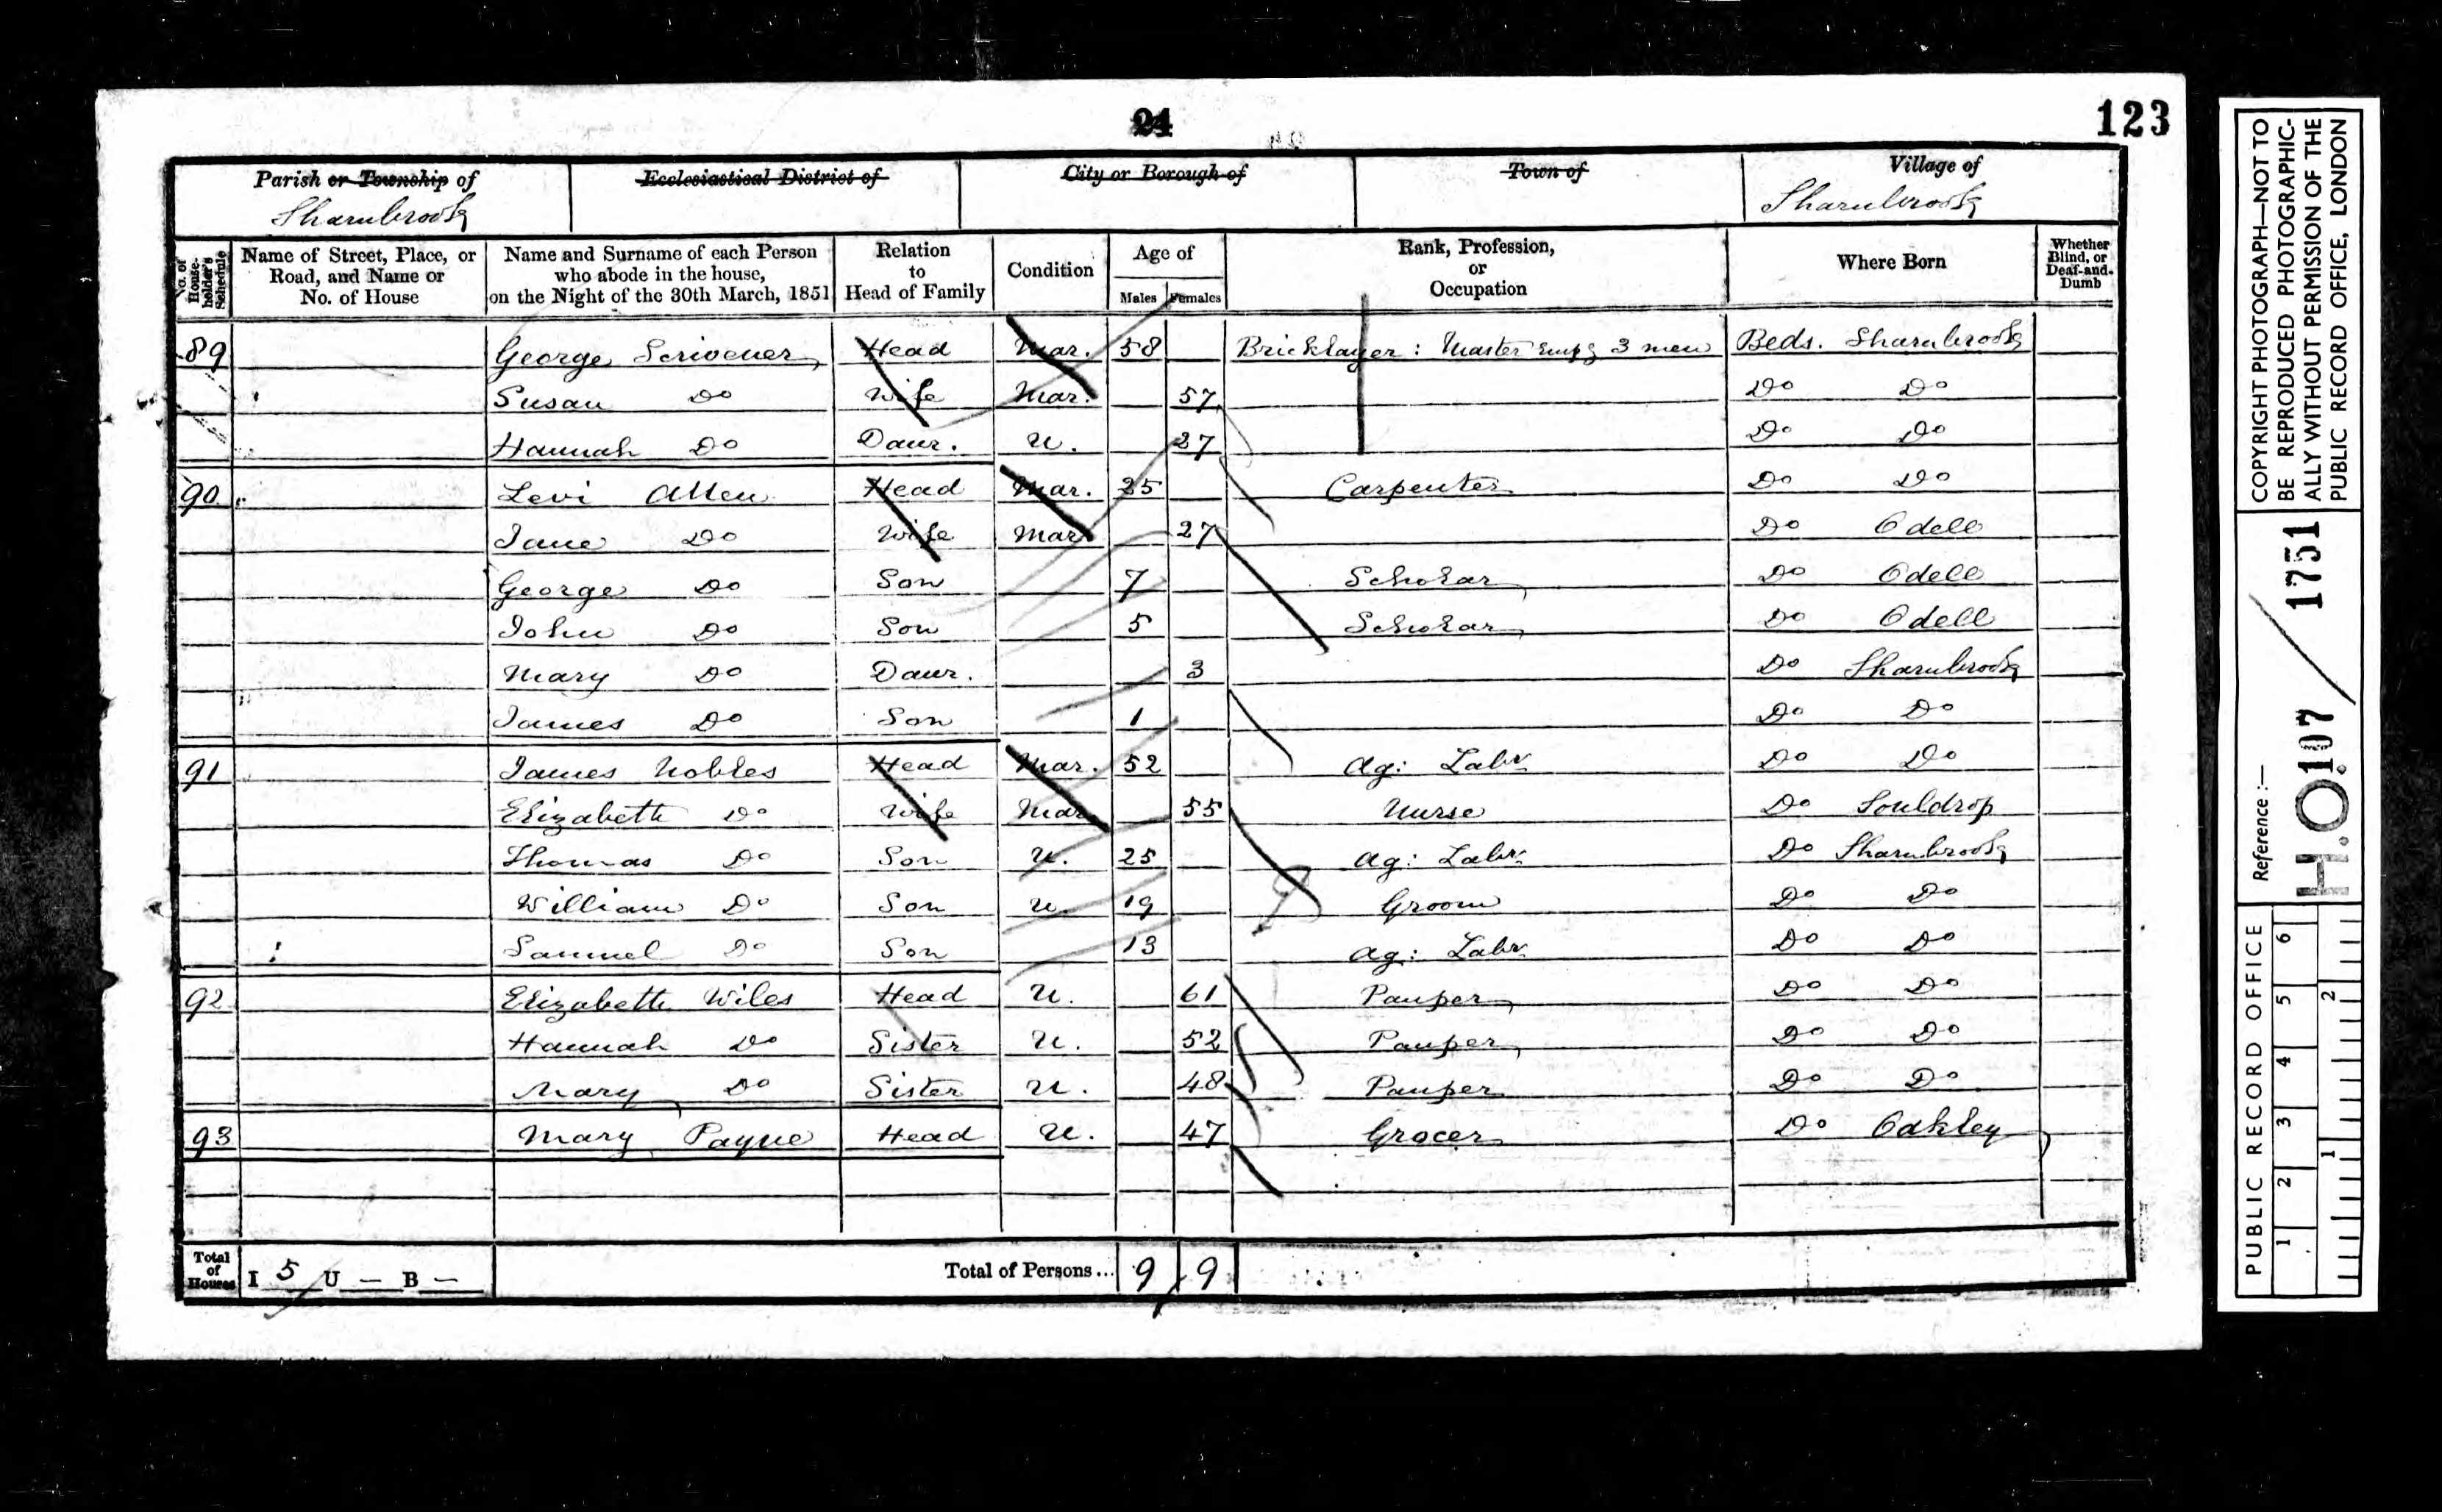 24
123
Parish or Township of
Sharnbrook
Ecclesiastical District of
City or Borough of
Town of
Village of
Sharnbrook
No. of House-holder's Schedule
Name of Street, Place, or Road, and Name or No. of House
Name and Surname of each Person who abode in the house, on the Night of the 30th March, 1851
Relation to Head of Family
Condition
Age of
Males Females
Rank, Profession, or Occupation
Where Born
Whether Blind, or Deaf-and-Dumb
89 George Scrivener Head Mar. 58 Bricklayer: Master Empg 3 men Beds. Sharnbrook
Susan Do Wife Mar. 57 Do Do
Hannah Do Daur. U. 27 Do Do
90 Levi Allen Head Mar. 25 Carpenter Do Do
Jane Do Wife Mar. 27 Do Odell
George Do Son 7 Scholar Do Odell
John Do Son 5 Scholar Do Odell
Mary Do Daur. 3 Do Sharnbrook
James Do Son 1 Do Do
91 James Nobles Head Mar. 52 Ag: Labr Do Do
Elizabeth Do Wife Mar. 55 Nurse Do Souldrop
Thomas Do Son U. 25 Ag: Labr Do Sharnbrook
William Do Son U. 19 Groom Do Do
Samuel Do Son 13 Ag: Labr Do Do
92 Elizabeth Wiles Head U. 61 Pauper Do Do
Hannah Do Sister U. 52 Pauper Do Do
Mary Do Sister U. 48 Pauper Do Do
93 Mary Payne Head U. 47 Grocer Do Oakley
Total of Houses I 5 U — B —
Total of Persons... 9 9
COPYRIGHT PHOTOGRAPH—NOT TO
BE REPRODUCED PHOTOGRAPHIC-
ALLY WITHOUT PERMISSION OF THE
PUBLIC RECORD OFFICE, LONDON
Reference :—
H.O. 107 / 1751
PUBLIC RECORD OFFICE
1 2 3 4 5 6
1 2